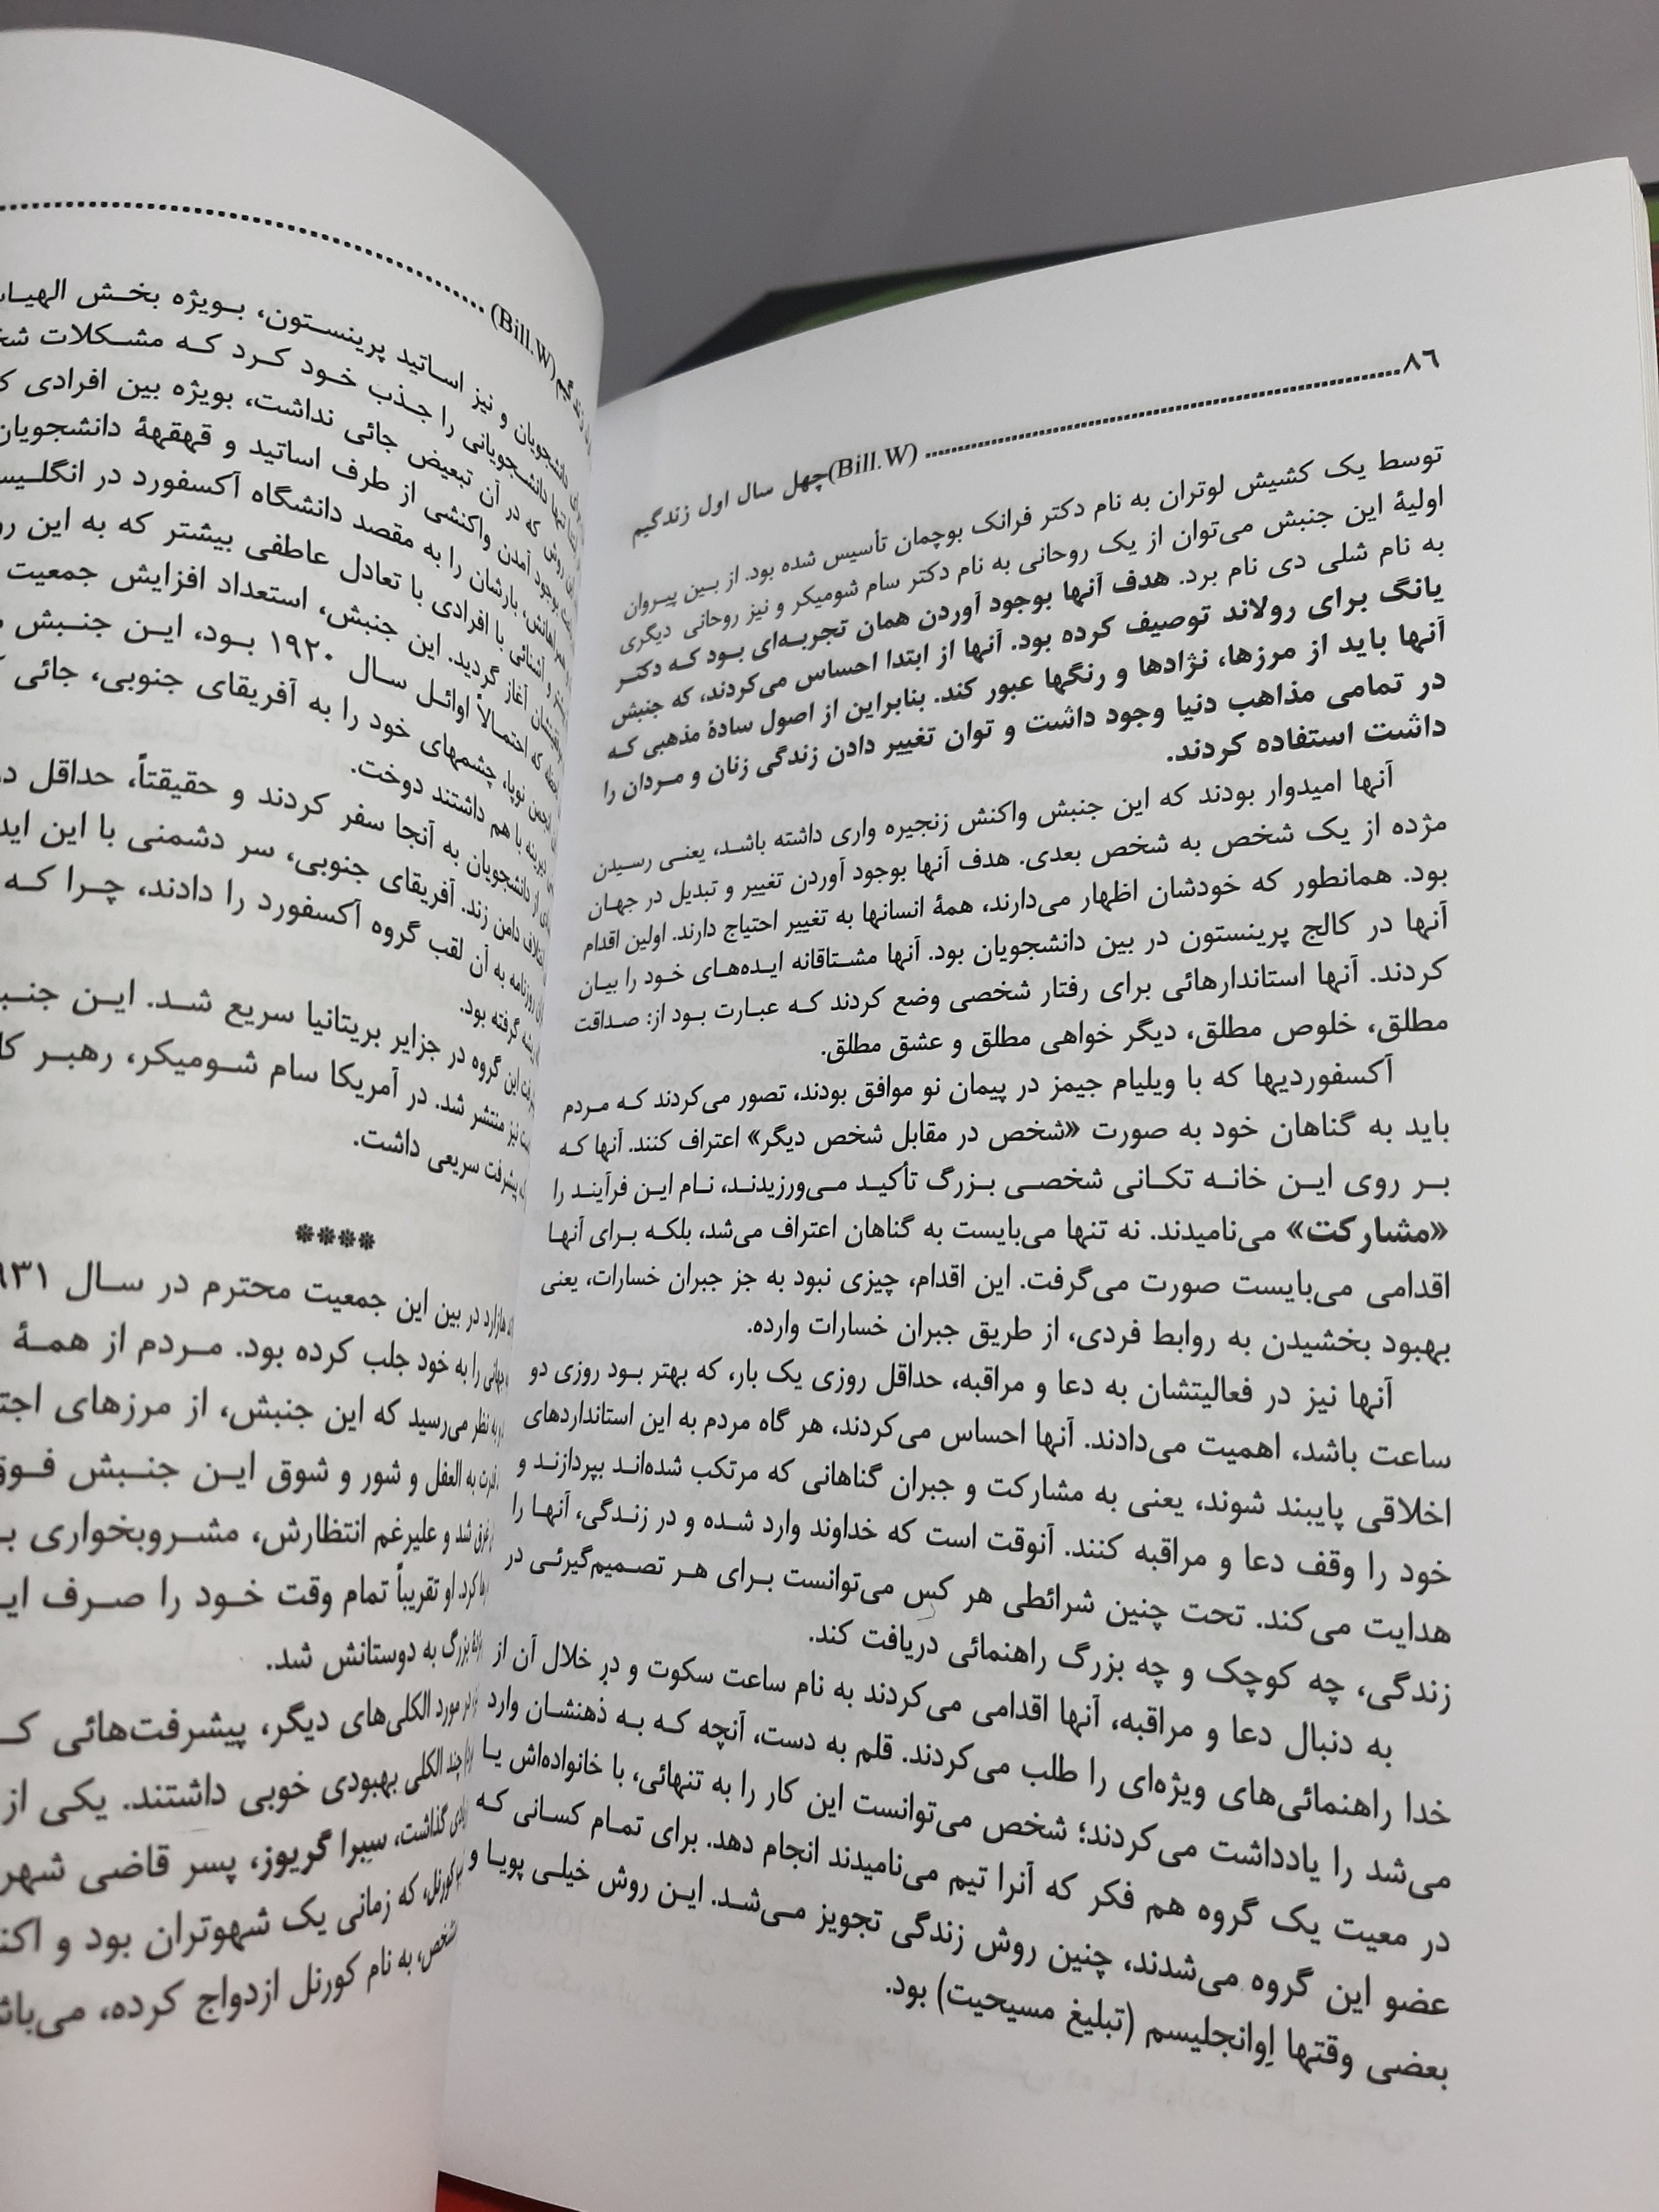 ۸۶ (Bill.W) چهل سال اول زندگیم
توسط یک کشیش لوتران به نام دکتر فرانک بوچمان تأسیس شده بود. از بین پیروان
اولیهٔ این جنبش می‌توان از یک روحانی به نام دکتر سام شومیکر و نیز روحانی دیگری
به نام شلی دی نام برد. هدف آنها بوجود آوردن همان تجربه‌ای بود که دکتر
یانگ برای رولاند توصیف کرده بود. آنها از ابتدا احساس می‌کردند، که جنبش
آنها باید از مرزها، نژادها و رنگها عبور کند. بنابراین از اصول سادهٔ مذهبی که
در تمامی مذاهب دنیا وجود داشت و توان تغییر دادن زندگی زنان و مردان را
داشت استفاده کردند.
آنها امیدوار بودند که این جنبش واکنش زنجیره واری داشته باشد، یعنی رسیدن
مژده از یک شخص به شخص بعدی. هدف آنها بوجود آوردن تغییر و تبدیل در جهان
بود. همانطور که خودشان اظهار می‌دارند، همهٔ انسانها به تغییر احتیاج دارند. اولین اقدام
آنها در کالج پرینستون در بین دانشجویان بود. آنها مشتاقانه ایده‌های خود را بیان
کردند. آنها استاندارهائی برای رفتار شخصی وضع کردند که عبارت بود از: صداقت
مطلق، خلوص مطلق، دیگر خواهی مطلق و عشق مطلق.
آکسفوردیها که با ویلیام جیمز در پیمان نو موافق بودند، تصور می‌کردند که مردم
باید به گناهان خود به صورت «شخص در مقابل شخص دیگر» اعتراف کنند. آنها که
بر روی این خانه تکانی شخصی بزرگ تأکید می‌ورزیدند، نام این فرآیند را
«مشارکت» می‌نامیدند. نه تنها می‌بایست به گناهان اعتراف می‌شد، بلکه برای آنها
اقدامی می‌بایست صورت می‌گرفت. این اقدام، چیزی نبود به جز جبران خسارات، یعنی
بهبود بخشیدن به روابط فردی، از طریق جبران خسارات وارده.
آنها نیز در فعالیتشان به دعا و مراقبه، حداقل روزی یک بار، که بهتر بود روزی دو
ساعت باشد، اهمیت می‌دادند. آنها احساس می‌کردند، هر گاه مردم به این استانداردهای
اخلاقی پایبند شوند، یعنی به مشارکت و جبران گناهانی که مرتکب شده‌اند بپردازند و
خود را وقف دعا و مراقبه کنند. آنوقت است که خداوند وارد شده و در زندگی، آنها را
هدایت می‌کند. تحت چنین شرائطی هر کس می‌توانست برای هر تصمیم‌گیرئی در
زندگی، چه کوچک و چه بزرگ راهنمائی دریافت کند.
به دنبال دعا و مراقبه، آنها اقدامی می‌کردند به نام ساعت سکوت و در خلال آن از
خدا راهنمائی‌های ویژه‌ای را طلب می‌کردند. قلم به دست، آنچه که به ذهنشان وارد
می‌شد را یادداشت می‌کردند؛ شخص می‌توانست این کار را به تنهائی، با خانواده‌اش یا
در معیت یک گروه هم فکر که آنرا تیم می‌نامیدند انجام دهد. برای تمام کسانی که
عضو این گروه می‌شدند، چنین روش زندگی تجویز می‌شد. این روش خیلی پویا و
بعضی وقتها اِوانجلیسم (تبلیغ مسیحیت) بود.
(Bill.W)
دانشجویان و نیز اساتید پرینستون، بویژه بخش
تنها دانشجویانی را جذب خود کرد که مشکلات
روش که در آن تبعیض جائی نداشت، بویژه بین افرادی
بوجود آمدن واکنشی از طرف اساتید و قهقههٔ دانشجویان
بارشان را به مقصد دانشگاه آکسفورد در
و آشنائی با افرادی با تعادل عاطفی بیشتر که به این
آغاز گردید. این جنبش، استعداد افزایش جمعیت
که احتمالاً اوائل سال ۱۹۲۰ بود، این جنبش
نوپا، چشمهای خود را به آفریقای جنوبی، جائی
دیرینه با هم داشتند دوخت.
از دانشجویان به آنجا سفر کردند و حقیقتاً، حداقل
دامن زند. آفریقای جنوبی، سر دشمنی با این
روزنامه به آن لقب گروه آکسفورد را دادند، چرا که
گرفته بود.
این گروه در جزایر بریتانیا سریع شد. این
نیز منتشر شد. در آمریکا سام شومیکر، رهبر
پیشرفت سریعی داشت.
****
هازارد در بین این جمعیت محترم در سال
را به خود جلب کرده بود. مردم از همهٔ
به نظر می‌رسید که این جنبش، از مرزهای
به العفل و شور و شوق این جنبش
غرق شد و علیرغم انتظارش، مشروبخواری
کرد. او تقریباً تمام وقت خود را صرف
بزرگ به دوستانش شد.
در مورد الکلی‌های دیگر، پیشرفت‌هائی
چند الکلی بهبودی خوبی داشتند. یکی از
گذاشت، سیبرا گریوز، پسر قاضی شهر
کورنل، که زمانی یک شهوتران بود و
شخص، به نام کورنل ازدواج کرده،